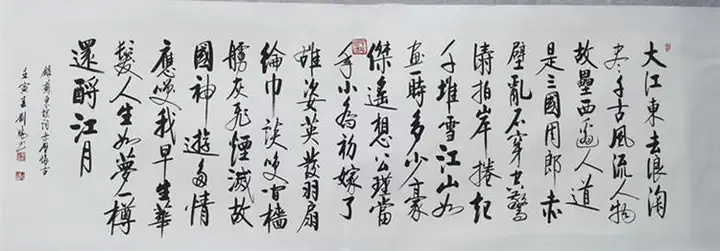 大江東去浪淘
盡千古風流人物
故壘西邊人道
是三國周郎赤
壁亂石穿空驚
濤拍岸捲起
千堆雪江山如
畫一時多少豪
傑遙想公瑾當
年小喬初嫁了
雄姿英發羽扇
綸巾談笑間檣
艣灰飛煙滅故
國神遊多情
應笑我早生華
髮人生如夢一樽
還酹江月
錄蘇東坡詞赤壁懷古
壬寅